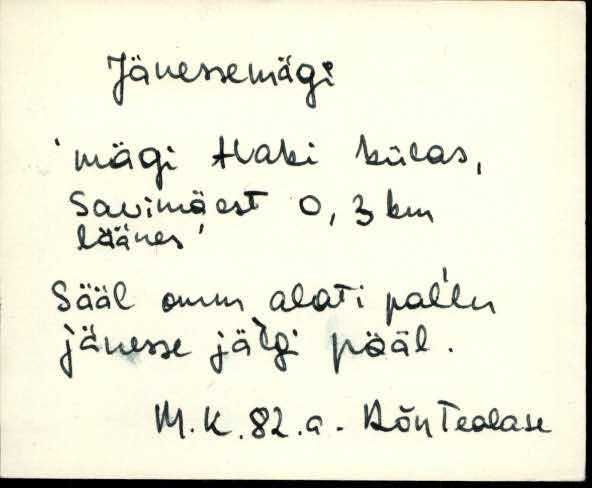 Jänessemägi
'mägi Haki külas,
Savimäest 0,3 km
läänes'
Sääl omm alati pal'lu
jänesse jälgi pääl.
M.K. 82.a. Rõn Tealase